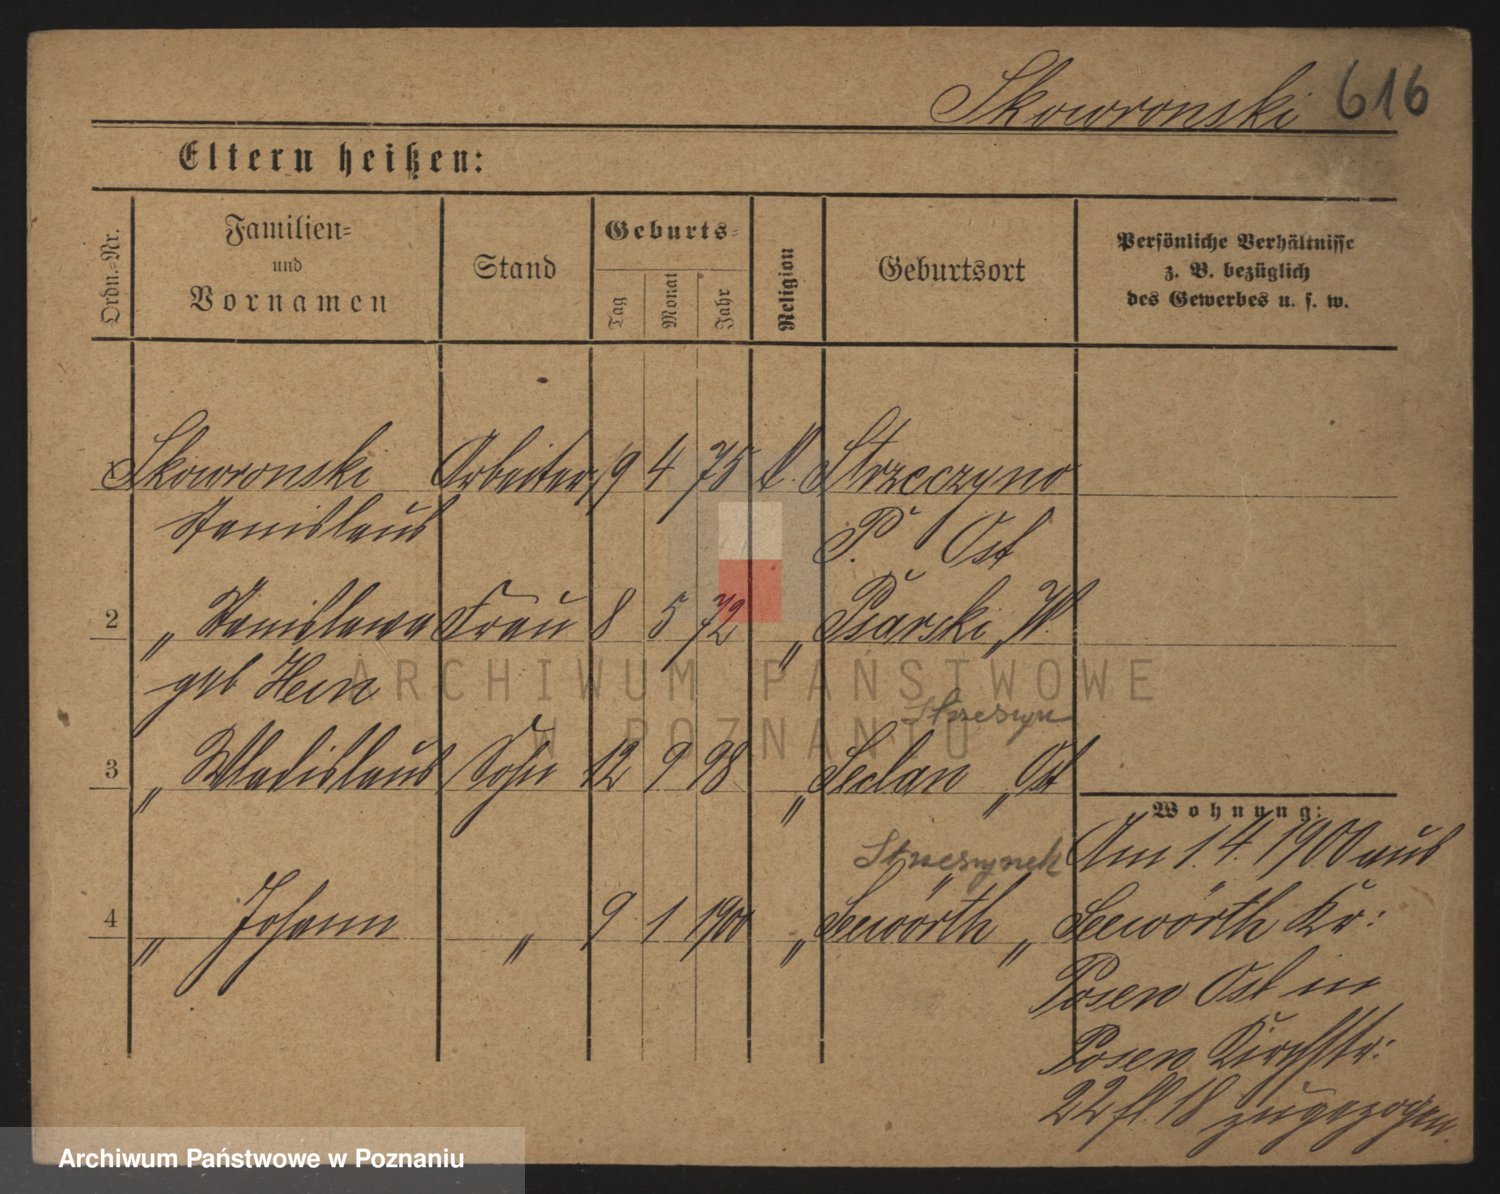 Skowronski 616
Eltern heißen:
Ordn.-Nr.
Familien-
und
Vornamen
Stand
Geburts-
Tag
Monat
Jahr
Religion
Geburtsort
Persönliche Verhältnisse
z. B. bezüglich
des Gewerbes u. s. w.
Skowronski Arbeiter 9 4 75 k. Strzeczyno
Stanislaus P. Ost
2 „ Stanislawa Frau 8 5 72 „ Psarski, W.
geb
Strzeszyn
3 „ Wladislaus Sohn 12 9 98 „ Sedan „ Ost
Wohnung:
Strzeszynek
Am 1.4.1900 aus
4 „ Johann „ 9 1 1900 „ Seewörth „
Seewörth Kr:
Posen Ost in
Posen Kirchstr:
22 fl. 18 zugezogen.
ARCHIWUM PAŃSTWOWE
W POZNANIU
Archiwum Państwowe w Poznaniu